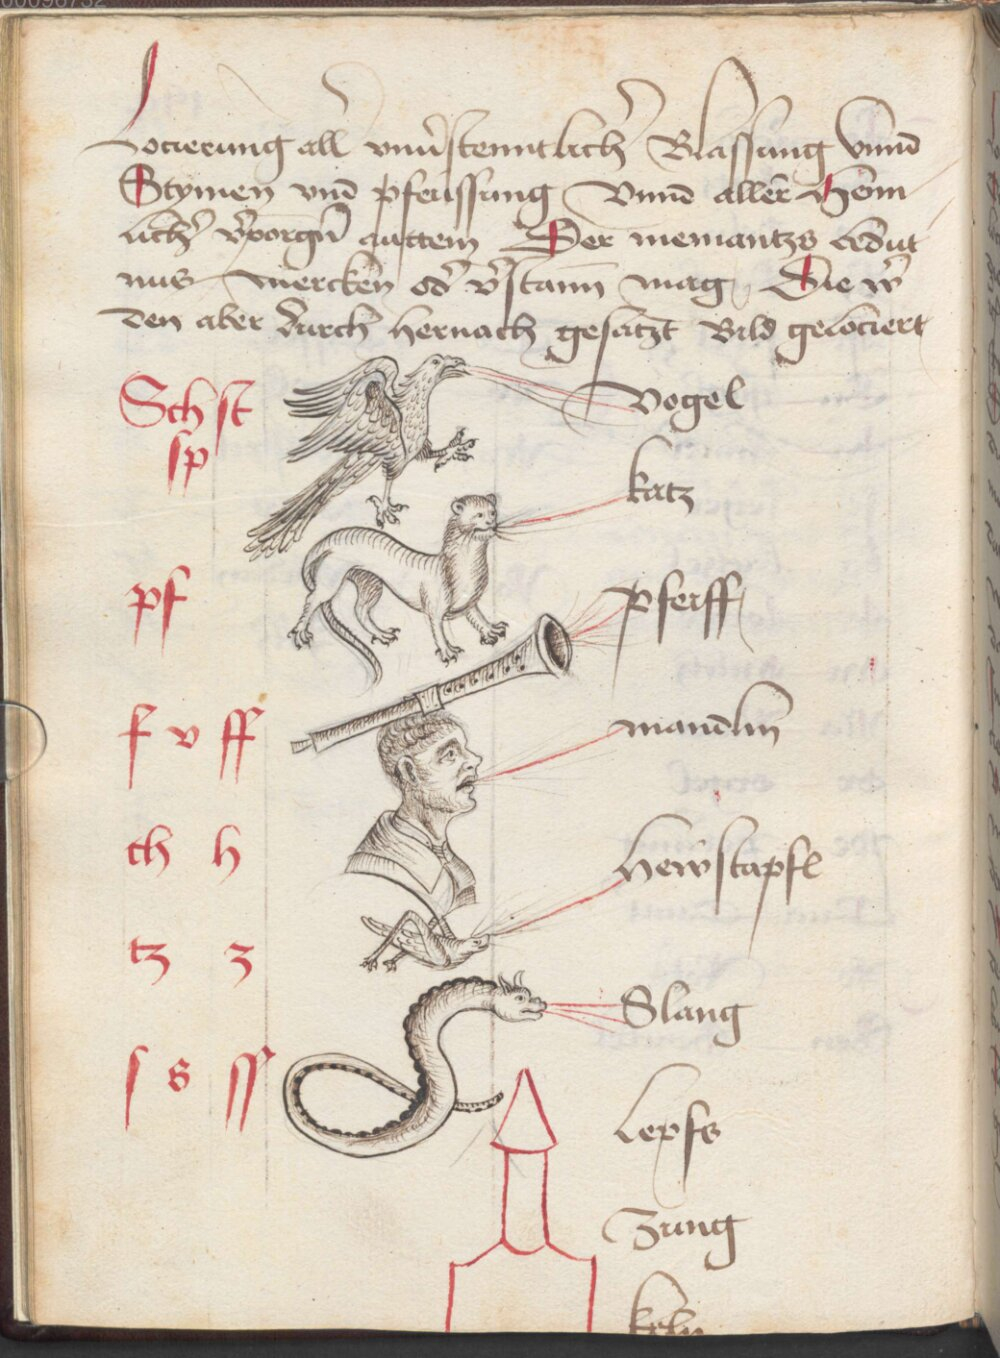 Locierung all vnuerstenntlich Blassung Vnnd
Stymen vnd pfeissung Vnnd aller heim
lich v̄porgn̄ Der niemantzs
nus mercken od v̄stann mag Die w̄
den aber durch hernach gesatzt Bild gelociert
Sch st Vogel
sp katz
pf Pfeiff
f v ff mandlin
ch h Hewstapfl
tz z Slang
s s ss Lepfs
Zung
keln